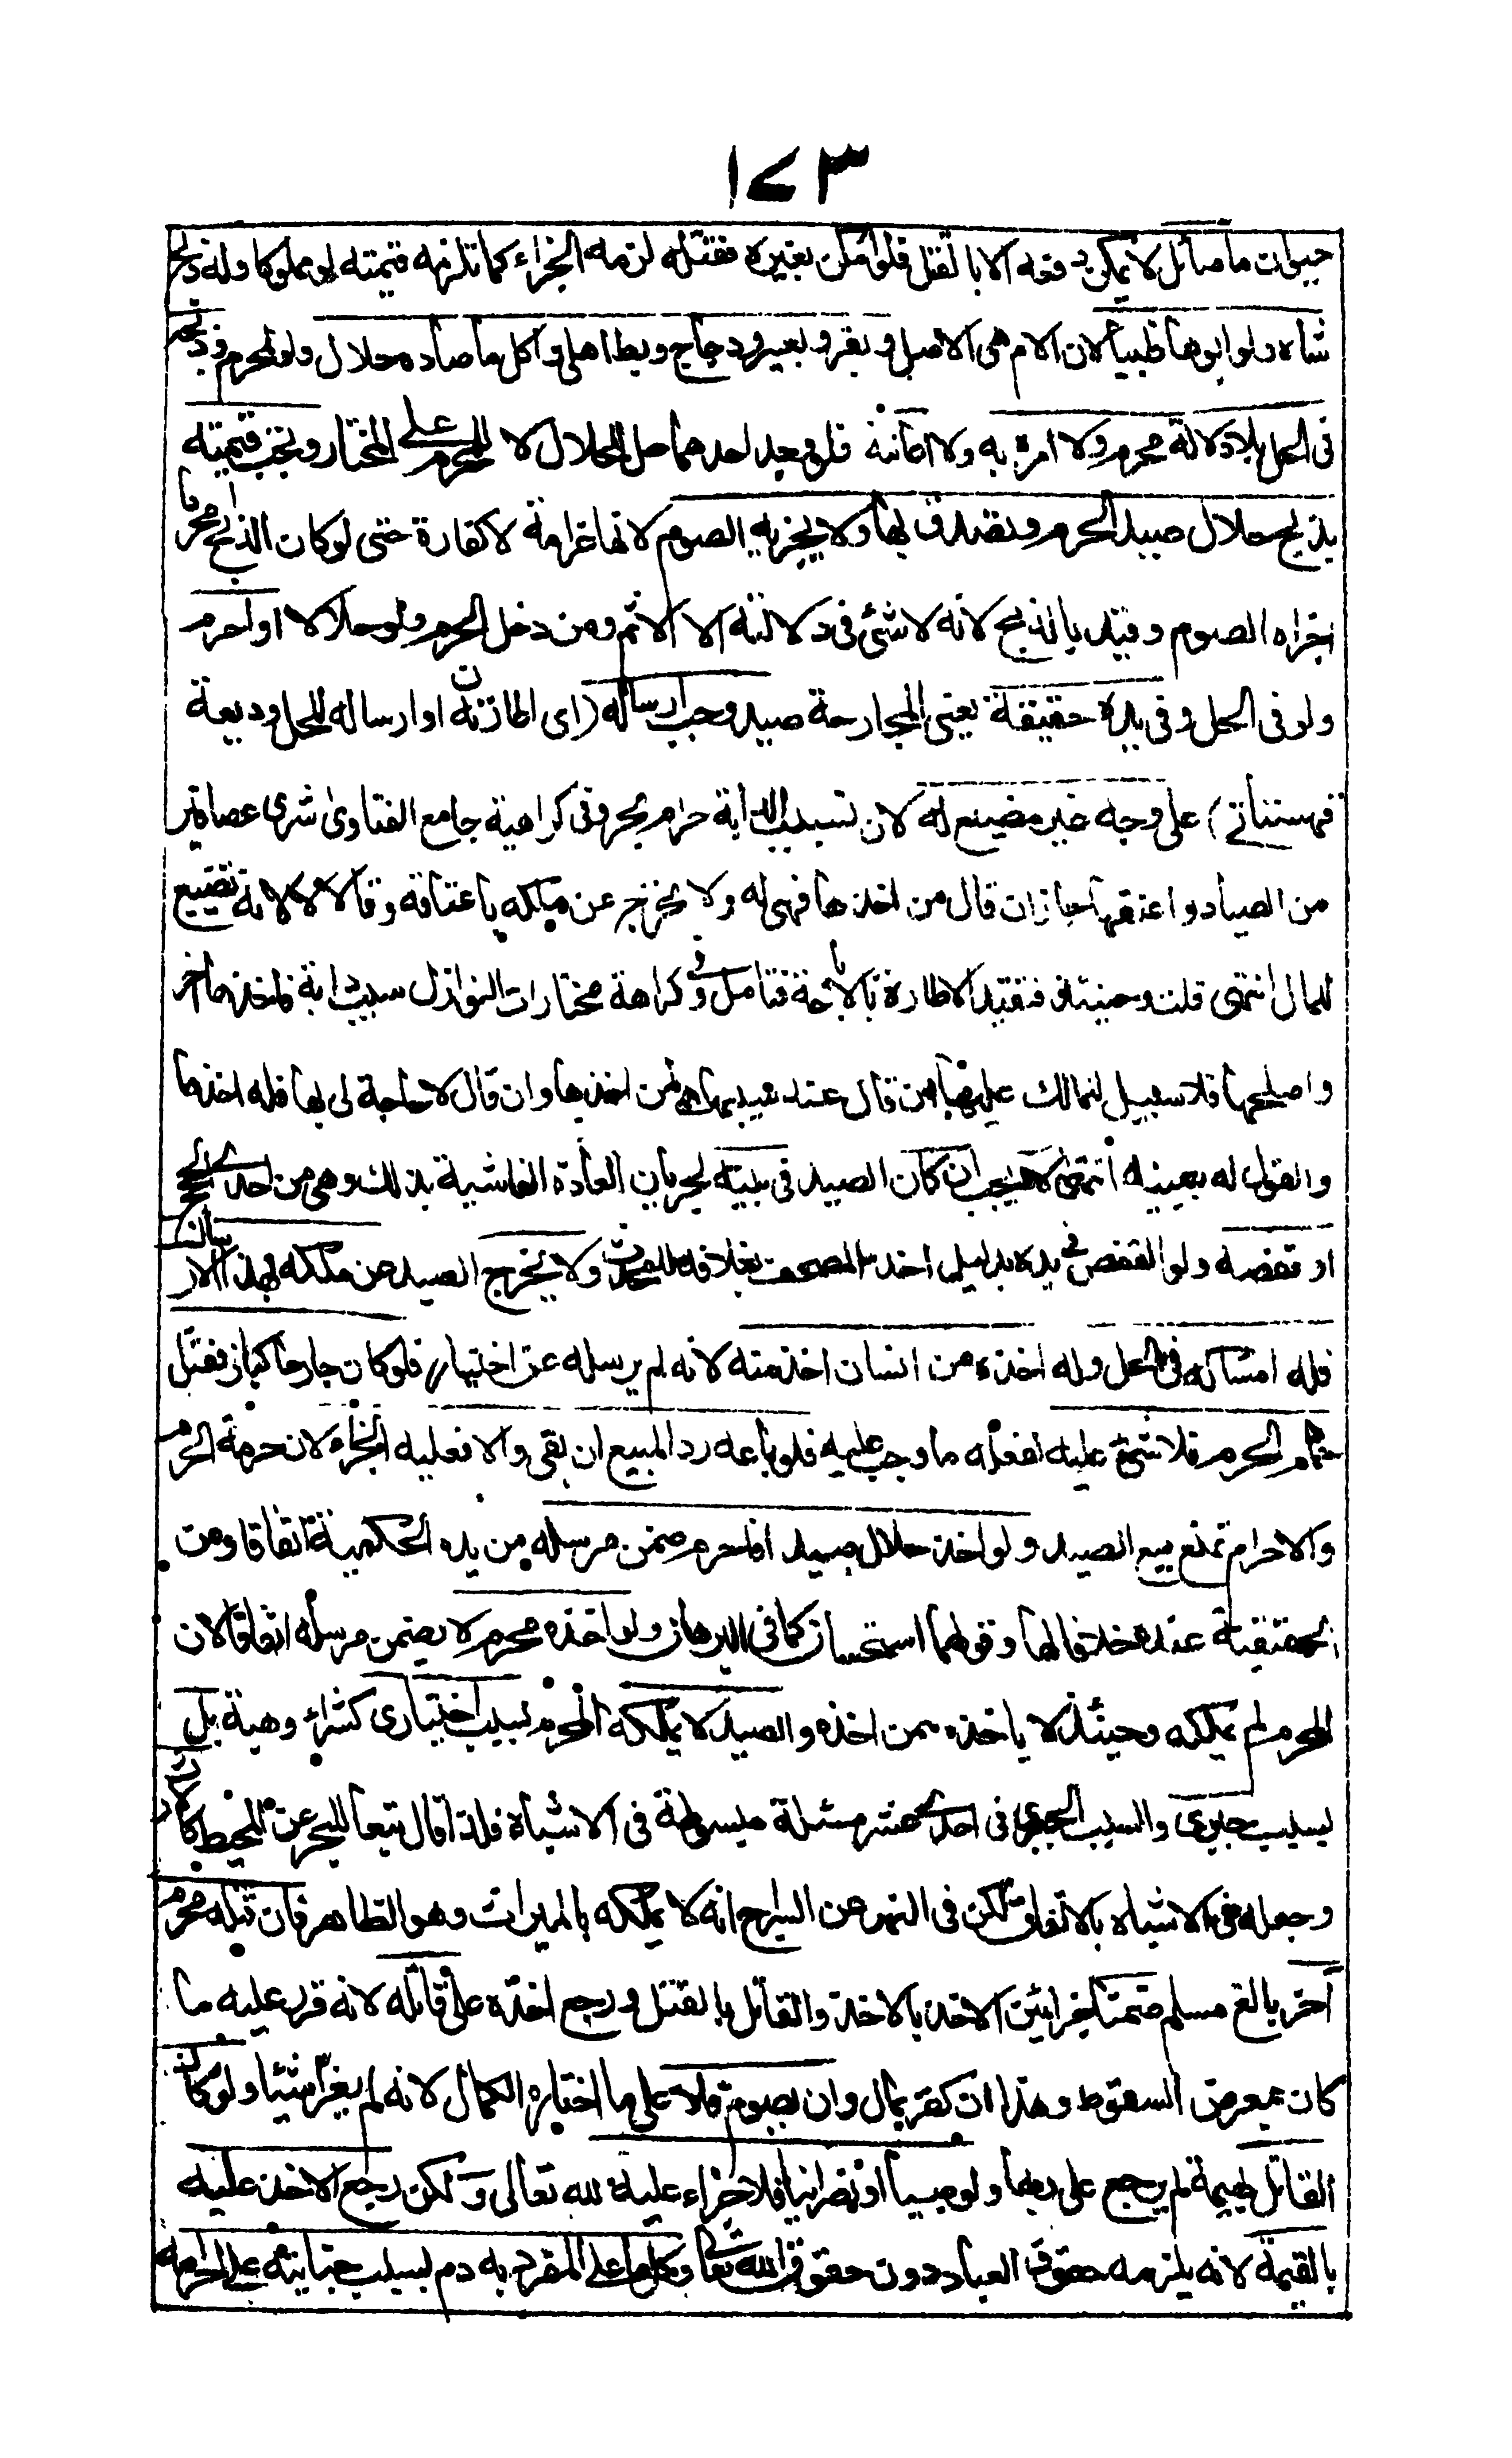 ١٧٣
حيوان صائل لا يمكن دفعه الا بالقتل فلو امكن بغيره فقتله لزمه الجزاء كما تلزمه قيمته لو مملوكا وله ذبح
شاة ولو ابوها ظبيا لان الام هى الاصل وبقر وبعير ودجاج وبط اهلى واكل ما صاده حلال ولو لمحرم وذبحه
فى الحل بلا دلالة محرم ولا امره به ولا اعانته فلو وجد احدهما حل للحلال لا للمحرم على المختار وتجب قيمته
بذبح حلال صيد الحرم وتصدق بها ولا يجزيه الصوم لانها غرامة لا كفارة حتى لو كان الذابح محرما
اجزاه الصوم وقيد بالذبح لانه لا شئ فى دلالته الا الاثم ومن دخل الحرم ولو حلالا او احرم
ولو فى الحل وفى يده حقيقة يعنى الجارحة صيد وجب ارساله (اى اطارته او ارساله للحل وديعة
قهستانى) على وجه غير مضيع له لان تسييب الدابة حرام بحر وفى كراهية جامع الفتاوى شرى عصافير
من الصياد واعتقها جاز ان قال من اخذها فهى له ولا يخرج عن ملكه باعتاقه وقال لا لانه تضييع
للمال انتهى قلت وحينئذ فتقيد الاطارة بالاباحة فتامل وفى كراهة مختارات النوازل سيب دابة فاخذها اخر
واصلحها فلا سبيل للمالك عليها ان قال عند تسييبها هى لمن اخذها وان قال لا حاجة لى بها فله اخذها
والقول له بيمينه انتهى لا يجب ان كان الصيد فى بيته لجريان العادة الفاشية بذلك وهى من احدى الحجج
او قفصه ولو القفص فى يده بدليل اخذ المصحف بغلافه للمحدث ولا يخرج الصيد عن ملكه بهذا الارسال
فله امساكه فى الحل وله اخذه من انسان اخذ منه لانه لم يرسله عن اختيار فلو كان جارحا كباز فقتل
حمام الحرم فلا شئ عليه لفعله ما وجب عليه فلو باعه رد المبيع ان بقى والا فعليه الجزاء لان حرمة الحرم
والاحرام تمنع بيع الصيد ولو اخذ حلال صيد افاحرم ضمن مرسله من يده الحكمية اتفاقا ومن
الحقيقية عنده خلافا لهما وقولهما استحسان كما فى البرهان ولو اخذه محرم لا يضمن مرسله اتفاقا لان
المحرم لم يملكه وحينئذ لا ياخذه ممن اخذه والصيد لا يملكه المحرم بسبب اختيارى كشراء وهبة بل
بسبب جبرى والسبب الجبرى فى احدى عشر مسئلة مبسوطة فى الاشباه فلذا قال تبعا للبحر عن المحيط كالارث
وجعله فى الاشباه بالاتفاق لكن فى النهر عن السراج انه لا يملكه بالميراث وهو الظاهر فان قتله محرم
آخر بالغ مسلم ضمنا جزائين الاخذ بالاخذ والقاتل بالقتل ورجع اخذه على قاتله لانه قرر عليه ما
كان بمعرض السقوط وهذا ان كفر بمال وان بصوم فلا على ما اختاره الكمال لانه لم يغرم شيئا ولو كان
القاتل بهيمة لم يرجع على ربها ولو صبيا او نصرانيا فلا جزاء عليه لله تعالى ولكن رجع الاخذ عليه
بالقيمة لانه يلزمه حقوق العباد دون حقوق الله تعالى وكل ما على المفرد به دم بسبب جنايته على احرامه